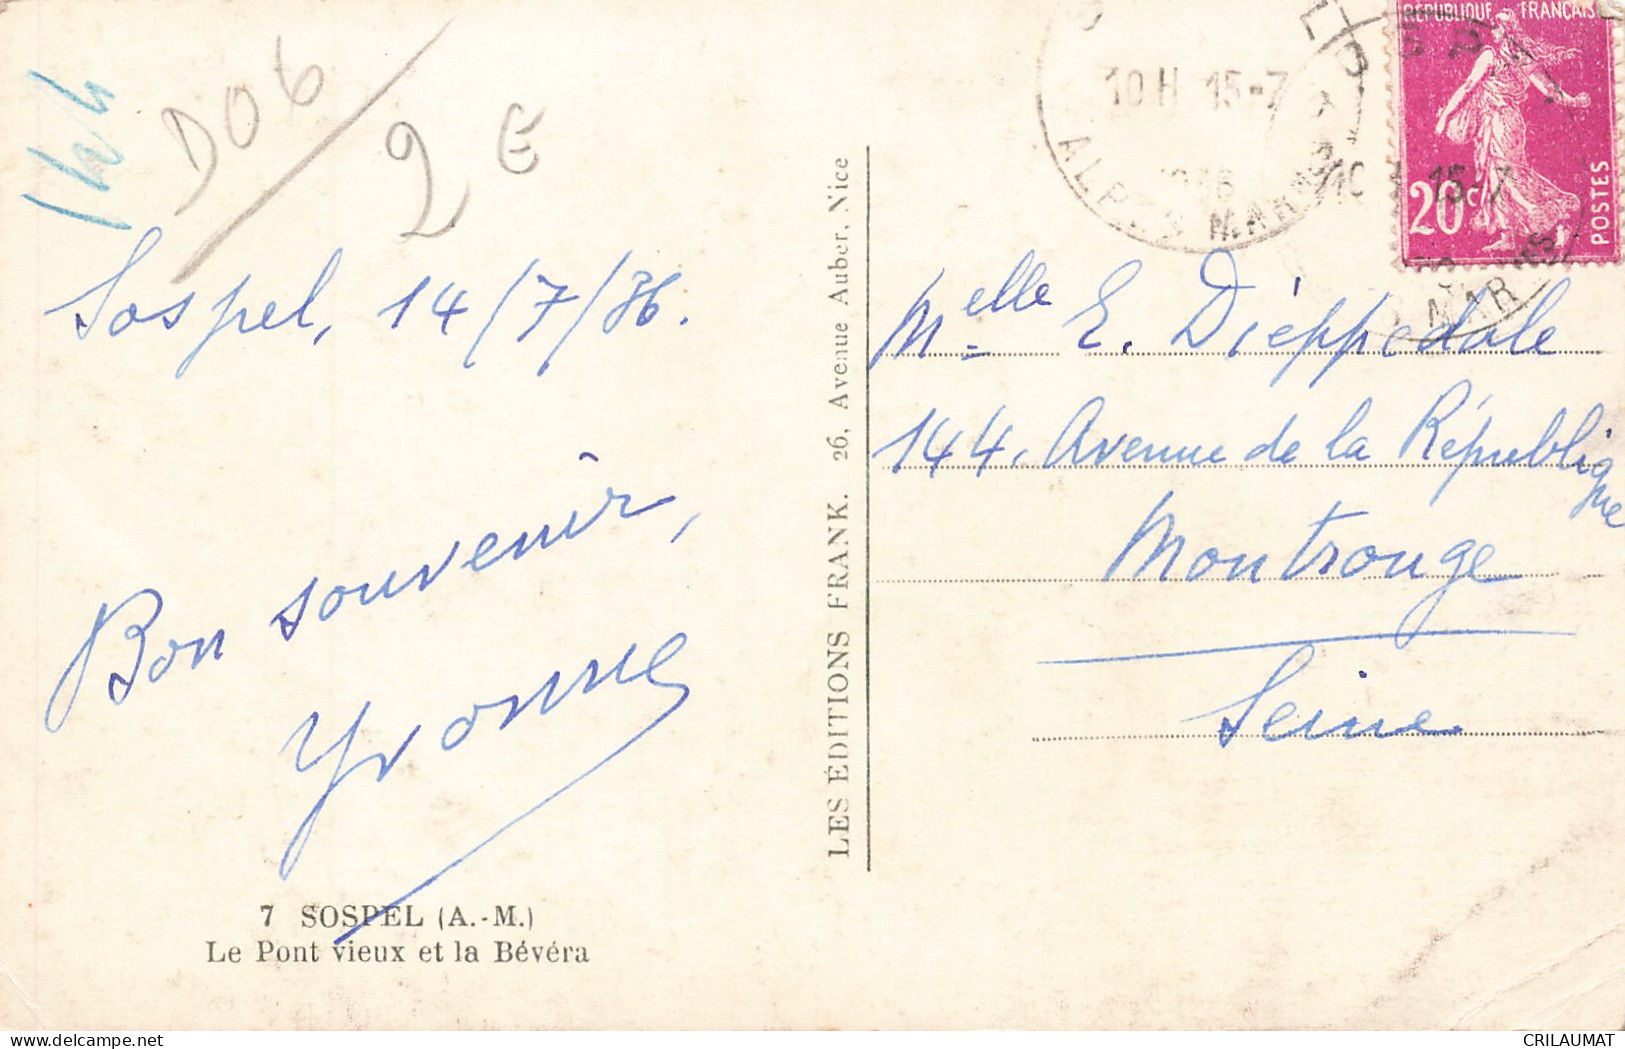 144
D06
2 E
Sospel, 14/7/36.
Bon souvenir,
Yvonne
7 SOSPEL (A.-M.)
Le Pont vieux et la Bévéra
LES ÉDITIONS FRANK. 26, Avenue Auber, Nice
10 H 15-7
ALPES MAR
RÉPUBLIQUE FRANÇAISE
20c
POSTES
15-7
Melle E. Dieppedale
144, Avenue de la République
Montrouge
Seine
delcampe.net
CRILAUMAT